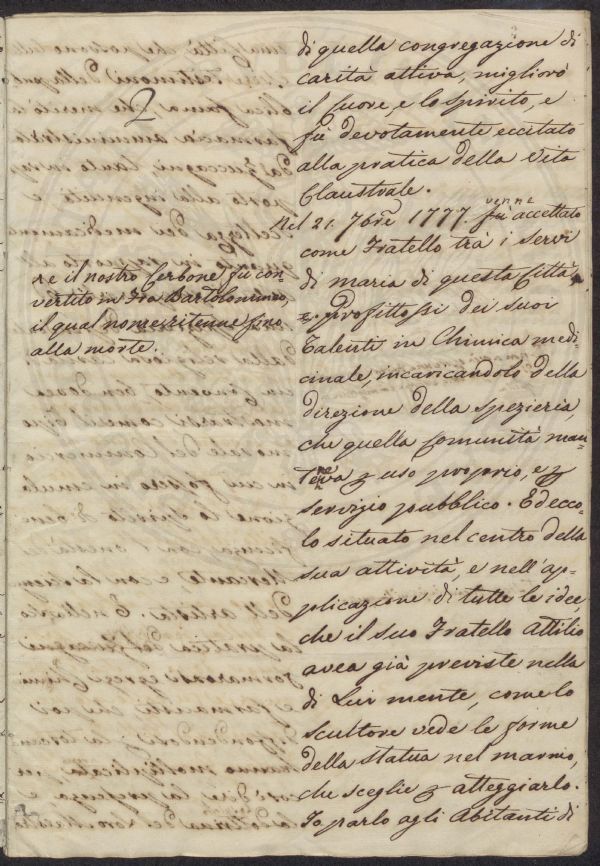 2
di quella congregazione di
carità attiva, migliorò
il cuore, e lo spirito, e
fù devotamente eccitato
alla pratica della vita
Claustrale.
Nel 21. 7bre 1777. fù venne accettato
come Fratello trà i servi
di maria di questa Città,
e profittossi dei suoi
Talenti in Chimica medi-
cinale, incaricandolo della
direzione della spezieria,
che quella comunità man-
teneva p uso proprio, e p
servizio pubblico. Ed ecco-
lo situato nel centro della
sua attività, e nell'ap-
plicazione di tutte le idee,
che il suo Fratello Attilio
avea già previste nella
di Lui mente, come lo
scultore vede le forme
della statua nel marmo,
che sceglie p atteggiarlo.
Io parlo agli Abitanti di
re il nostro Cerbone fù con-
vertito in Fra Bartolommeo,
il qual nome ritenne fino
alla morte.